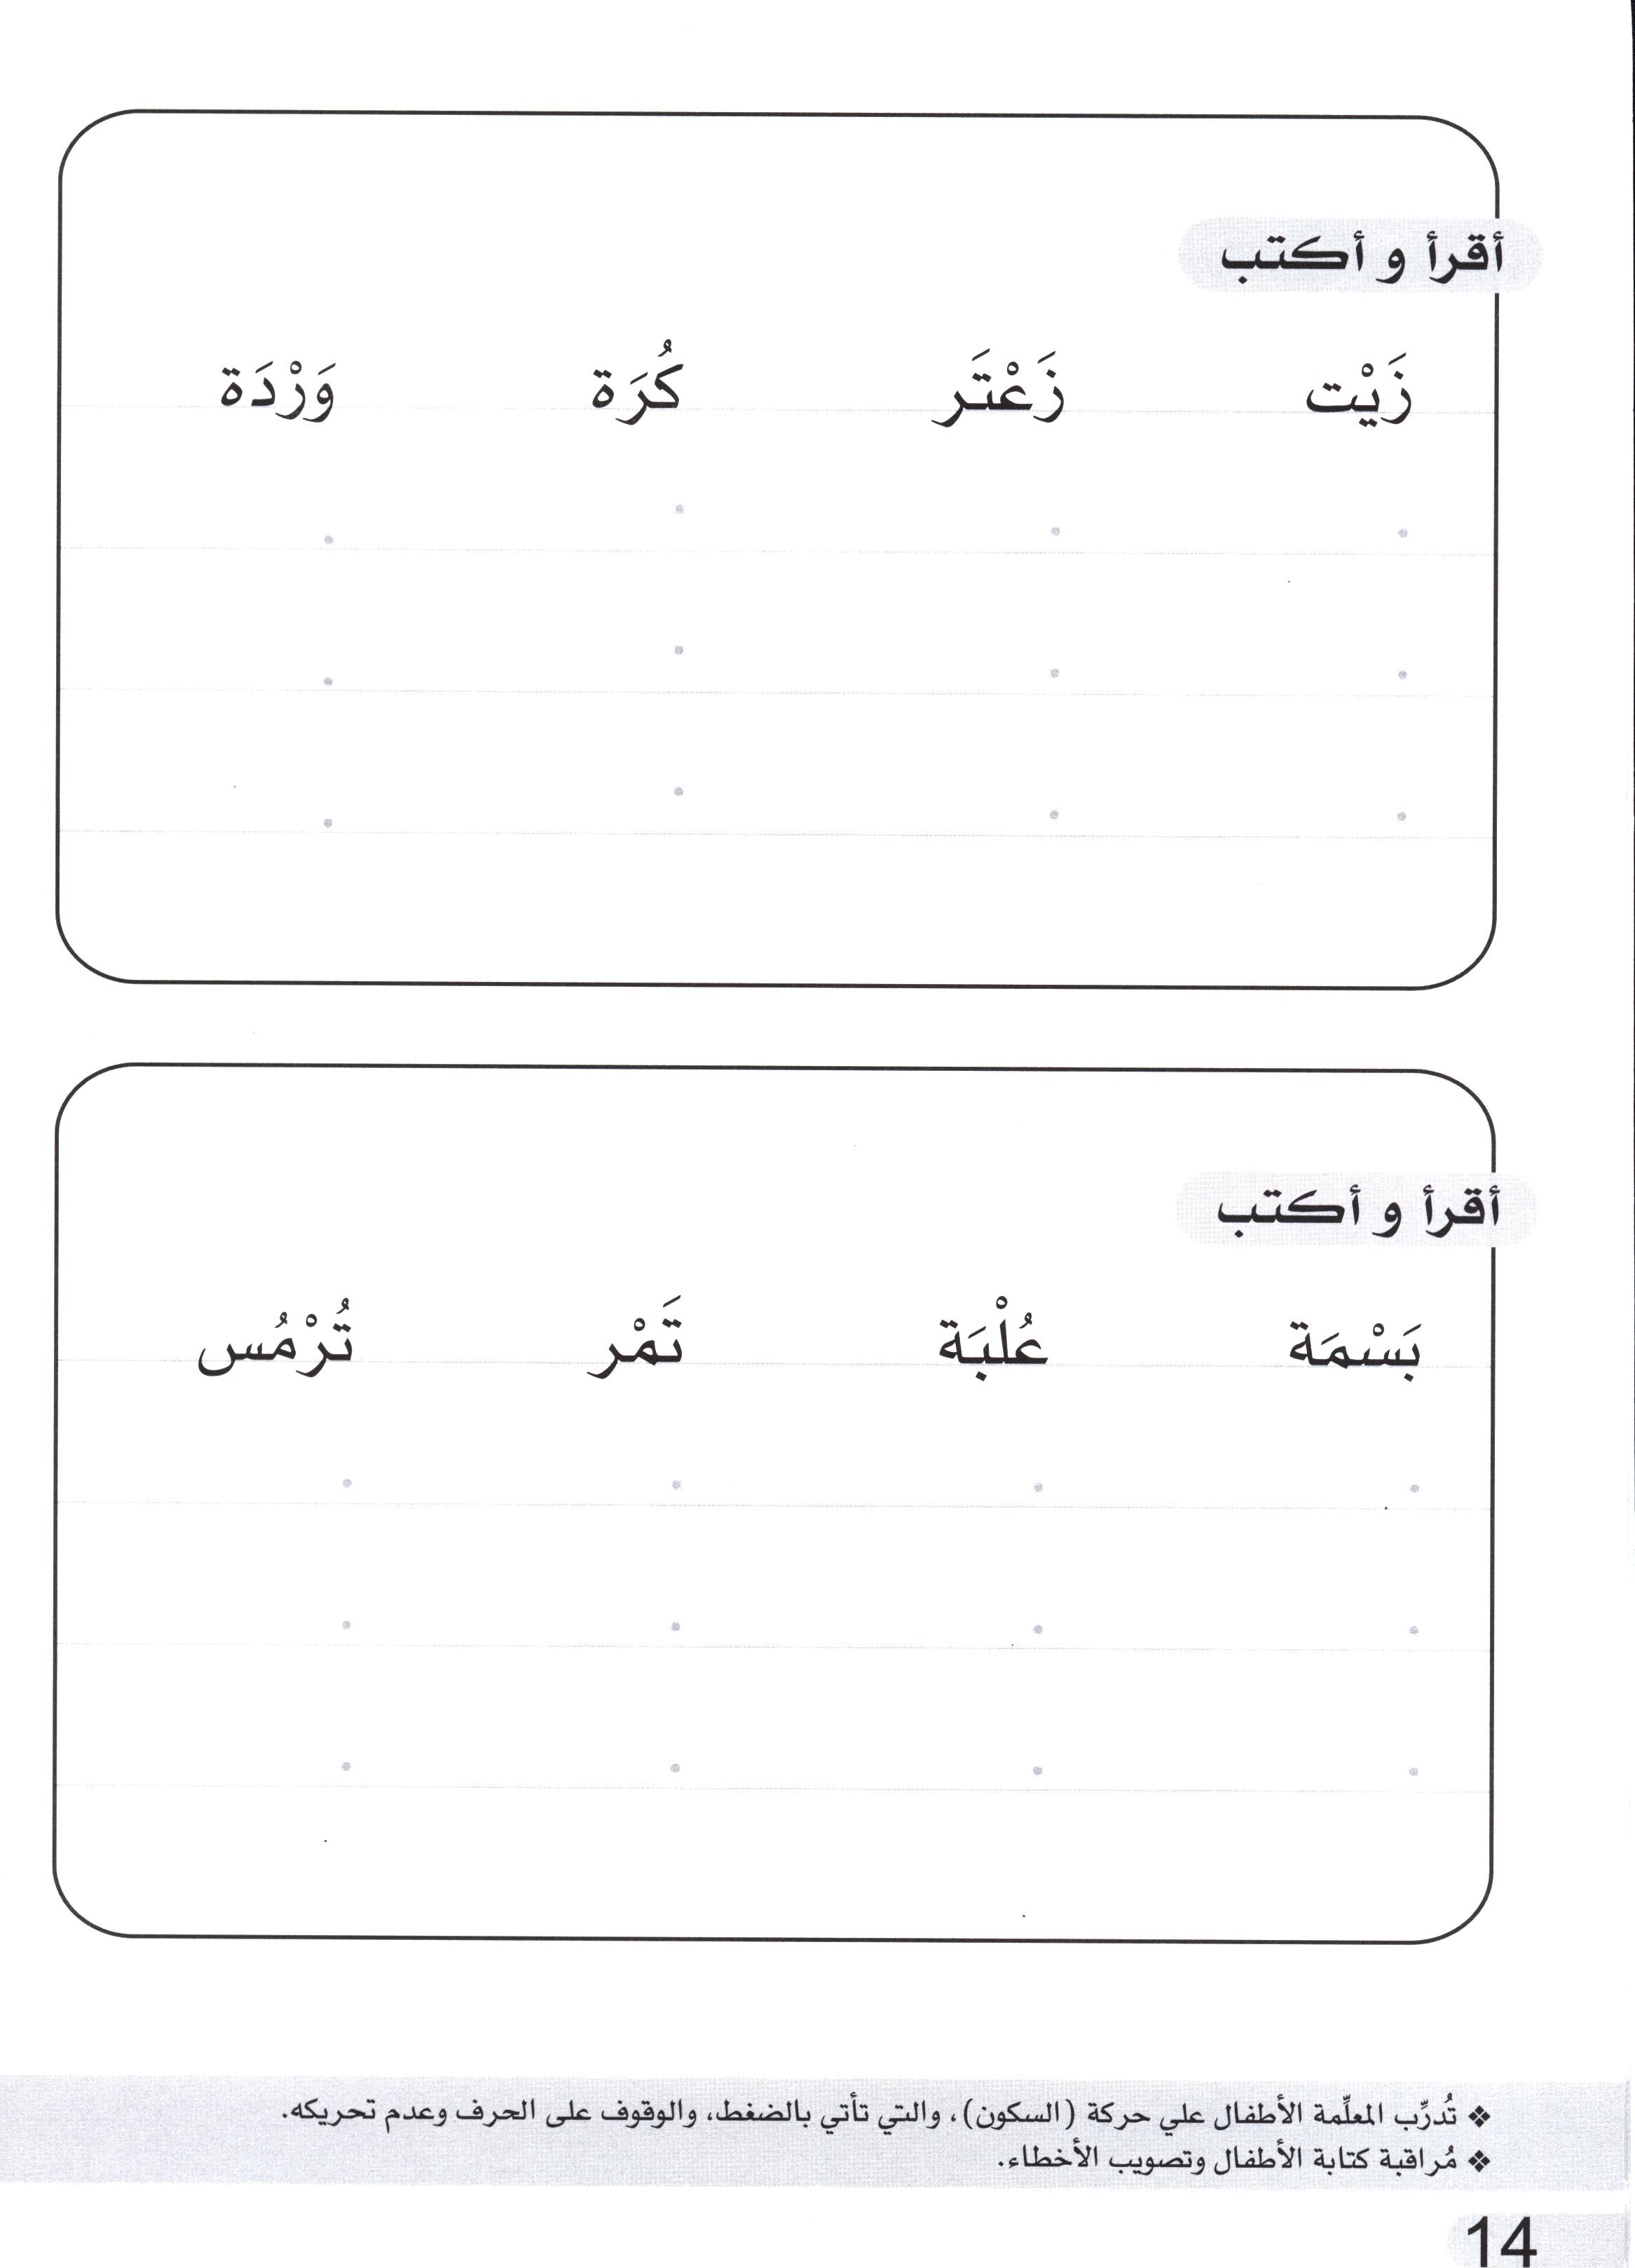 أقرأ و أكتب
زَيْت زَعْتَر كُرَة وَرْدَة
أقرأ و أكتب
بَسْمَة عُلْبَة تَمْر تُرْمُس
❖ تُدرِّب المعلِّمة الأطفال علي حركة (السكون)، والتي تأتي بالضغط، والوقوف على الحرف وعدم تحريكه.
❖ مُراقبة كتابة الأطفال وتصويب الأخطاء.
14